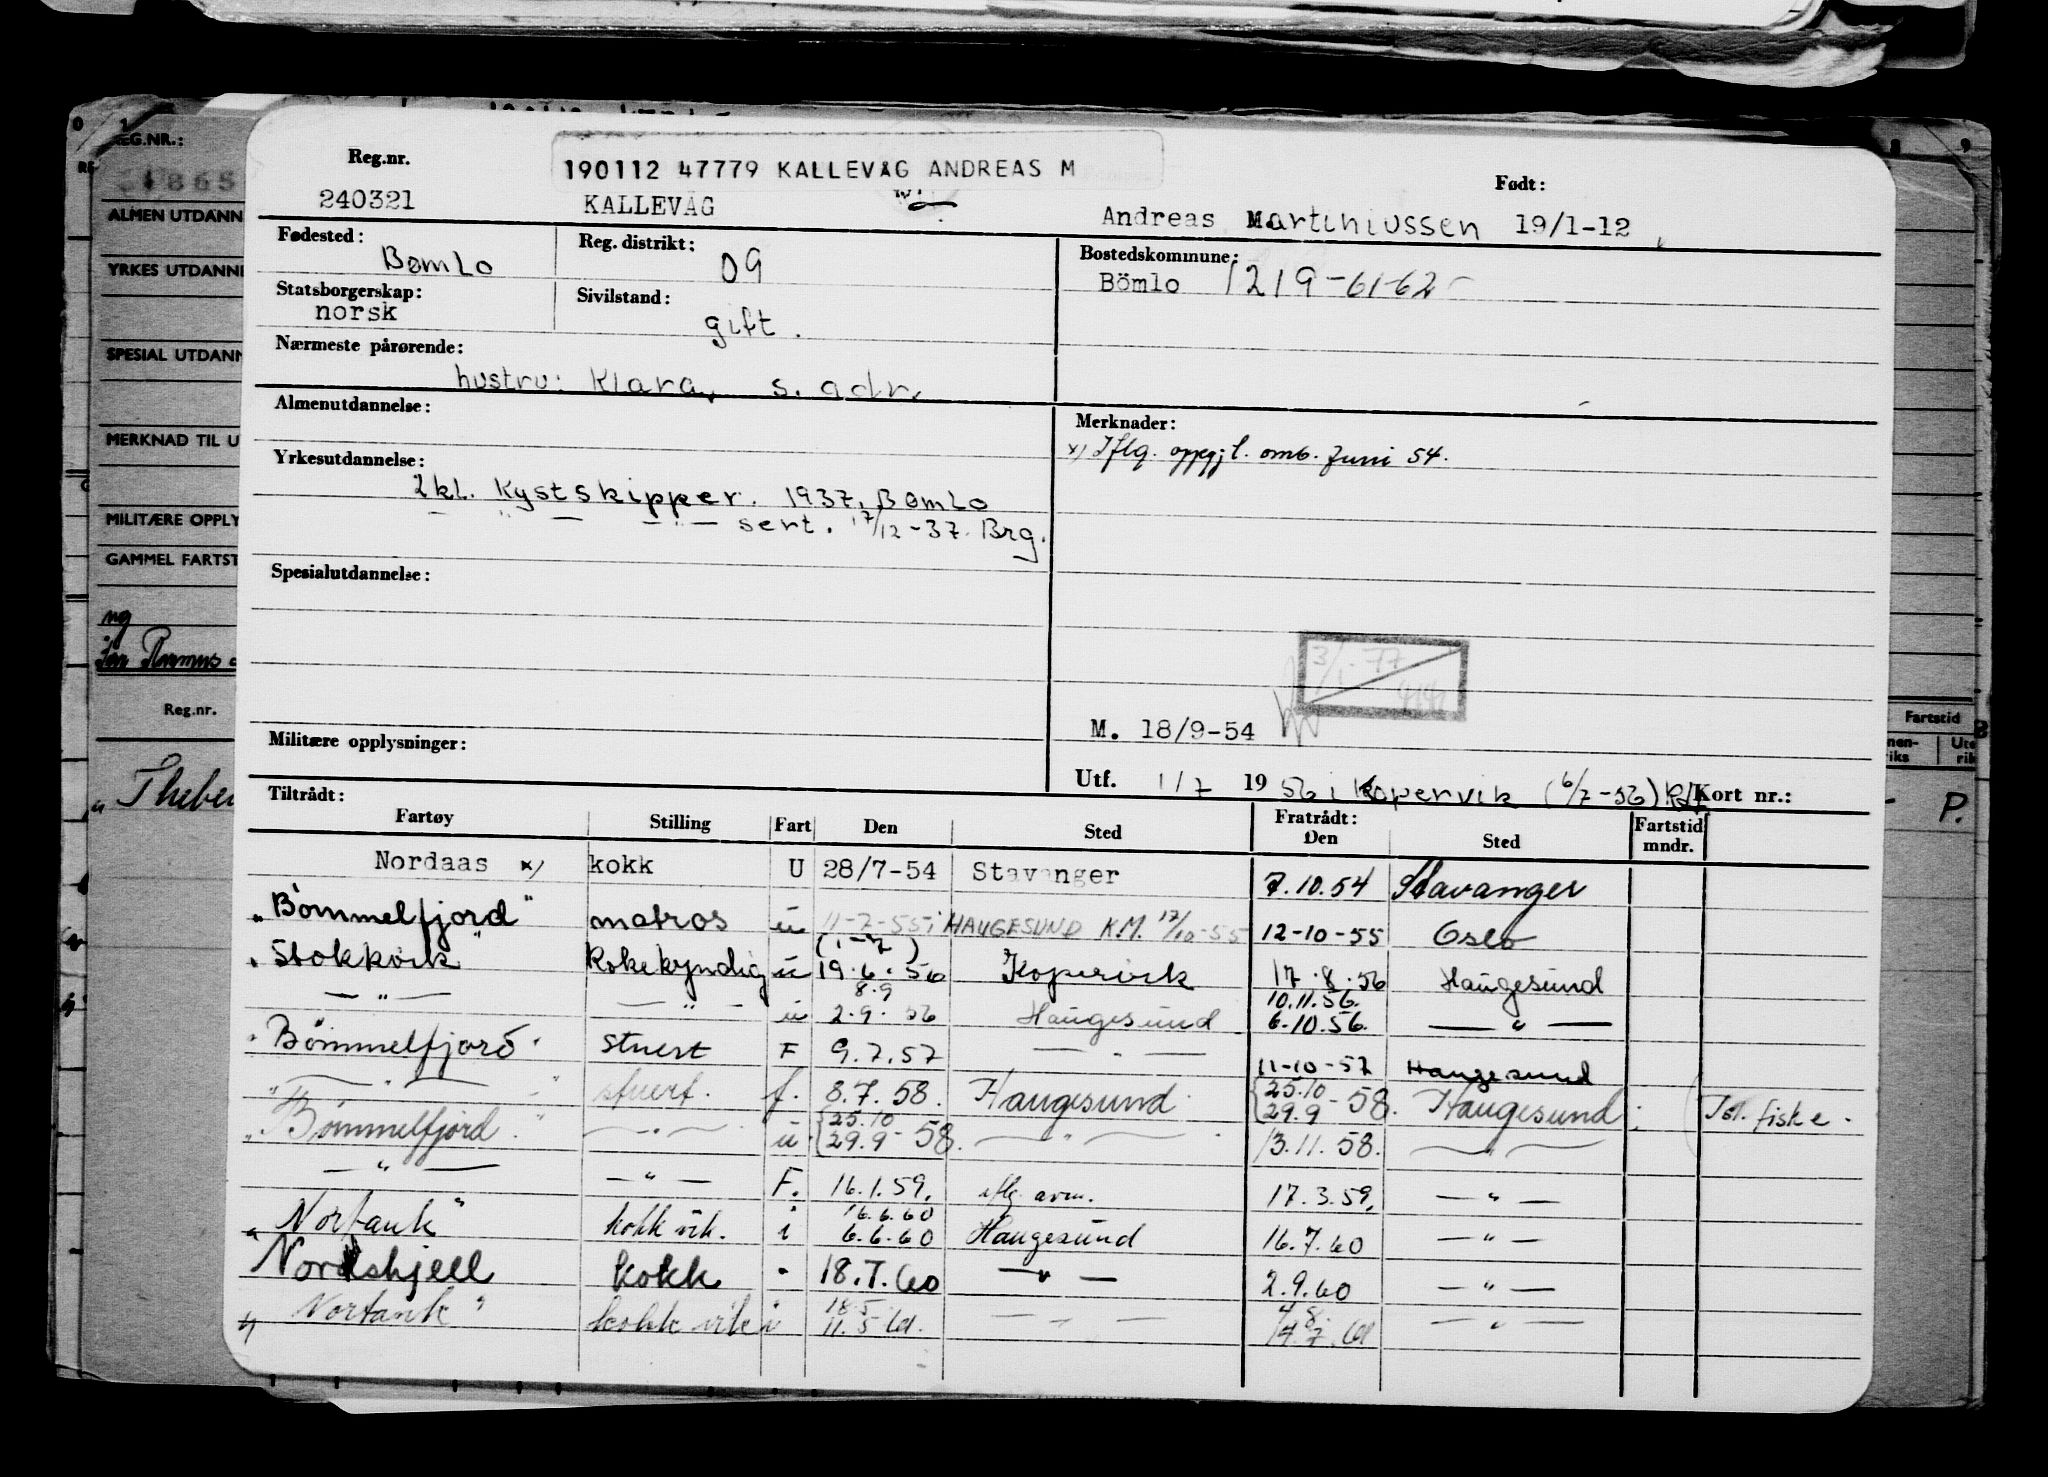 Reg.nr.
190112 47779 KALLEVÅG ANDREAS M
Født:
240321 KALLEVÅG Andreas Martiniussen 19/1-12
Fødested: Bømlo
Reg. distrikt: 09
Bostedskommune:
Bömlo 1219-61-62-
Statsborgerskap: norsk
Sivilstand: gift.
Nærmeste pårørende:
hustru: Klara, s. adr.
Almenutdannelse:
Merknader:
x) Iflg. oppgj. l. omb. Juni 54.
Yrkesutdannelse:
2kl. Kystskipper. 1937, Bømlo
— " — — " — sert. 17/12-37. Brg.
Spesialutdannelse:
3/1-77
M. 18/9-54
Militære opplysninger:
Utf. 1/7 1956 i Kopervik (6/7-56) Kort nr.:
Tiltrådt: Fratrådt:
Fartøy Stilling Fart Den Sted Den Sted Fartstid mndr.
Nordaas x) kokk U 28/7-54 Stavanger 7.10.54 Stavanger
"Bømmelfjord" matros u 11-7-55 i HAUGESUND K.M. 17/10-55 12-10-55 Oslo
(1-7)
Stokkvik" Kokekyndig u 19.6.56 Kopervik 17.8.56 Haugesund
8.9 10.11.56.
— " — — " — u 2.9.56 Haugesund 6.10.56. — " —
"Bømmelfjord" stuert F 9.7.57 — " — 11-10-57 Haugesund
" — " — " stuert. f. 8.7.58. Haugesund {25.10 29.9 - 58. Haugesund Isl. fiske.
"Bømmelfjord" — " — u {25.10 29.9 - 58. — " — 13.11.58. — " —
— " — — " — F. 16.1.59. iflg avm. 17.3.59. — " —
16.6.60
"Nortank" kokk vik. i 6.6.60 Haugesund 16.7.60 — " —
Nordskjell kokk " 18.7.60 — " — 2.9.60 — " —
18.5 4.8.
" Nortank" kokk vik i 11.5.61. — " — 14.7.61 — " —
REG.NR.:
ALMEN UTDANN
YRKES UTDANNE
SPESIAL UTDANN
MERKNAD TIL U
MILITÆRE OPPLY
GAMMEL FARTST
ng
Reg.nr.
Fartstid
nen-
riks
Ute
rik
P.